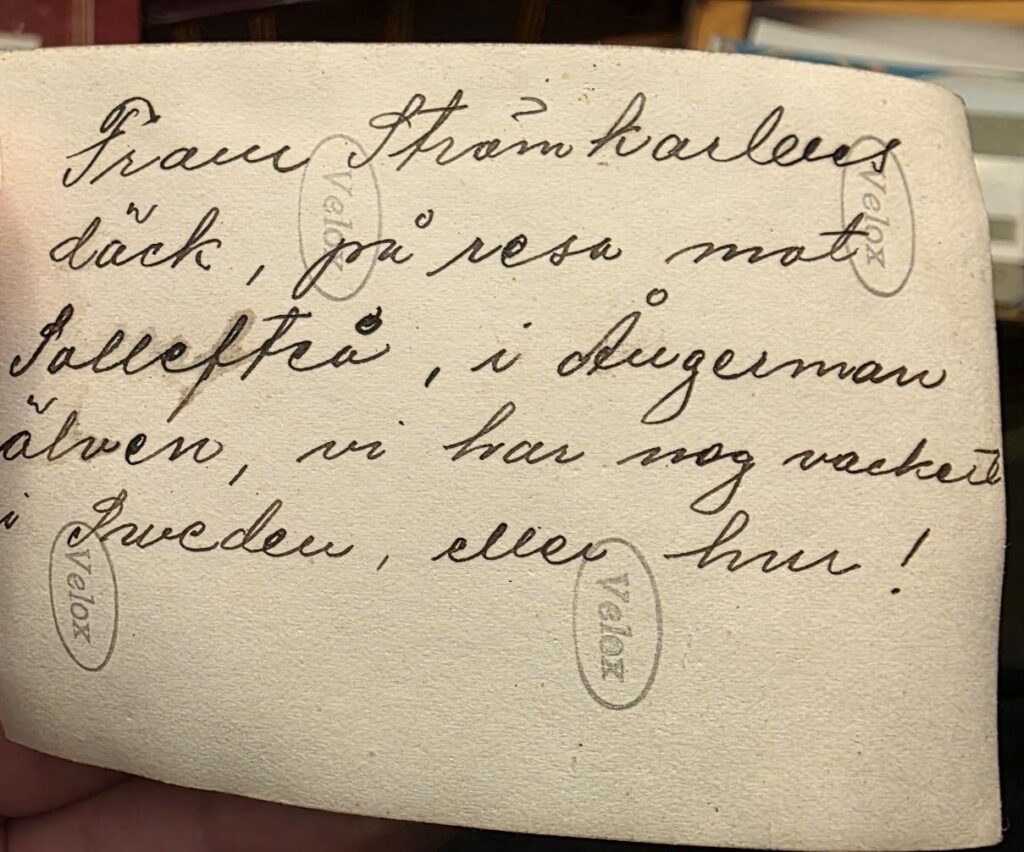 Fram Strömkarlens
däck, på resa mot
Sollefteå, i Ångerman
älven, vi har nog vackert
i Sweden, eller hur!
Velox
Velox
Velox
Velox